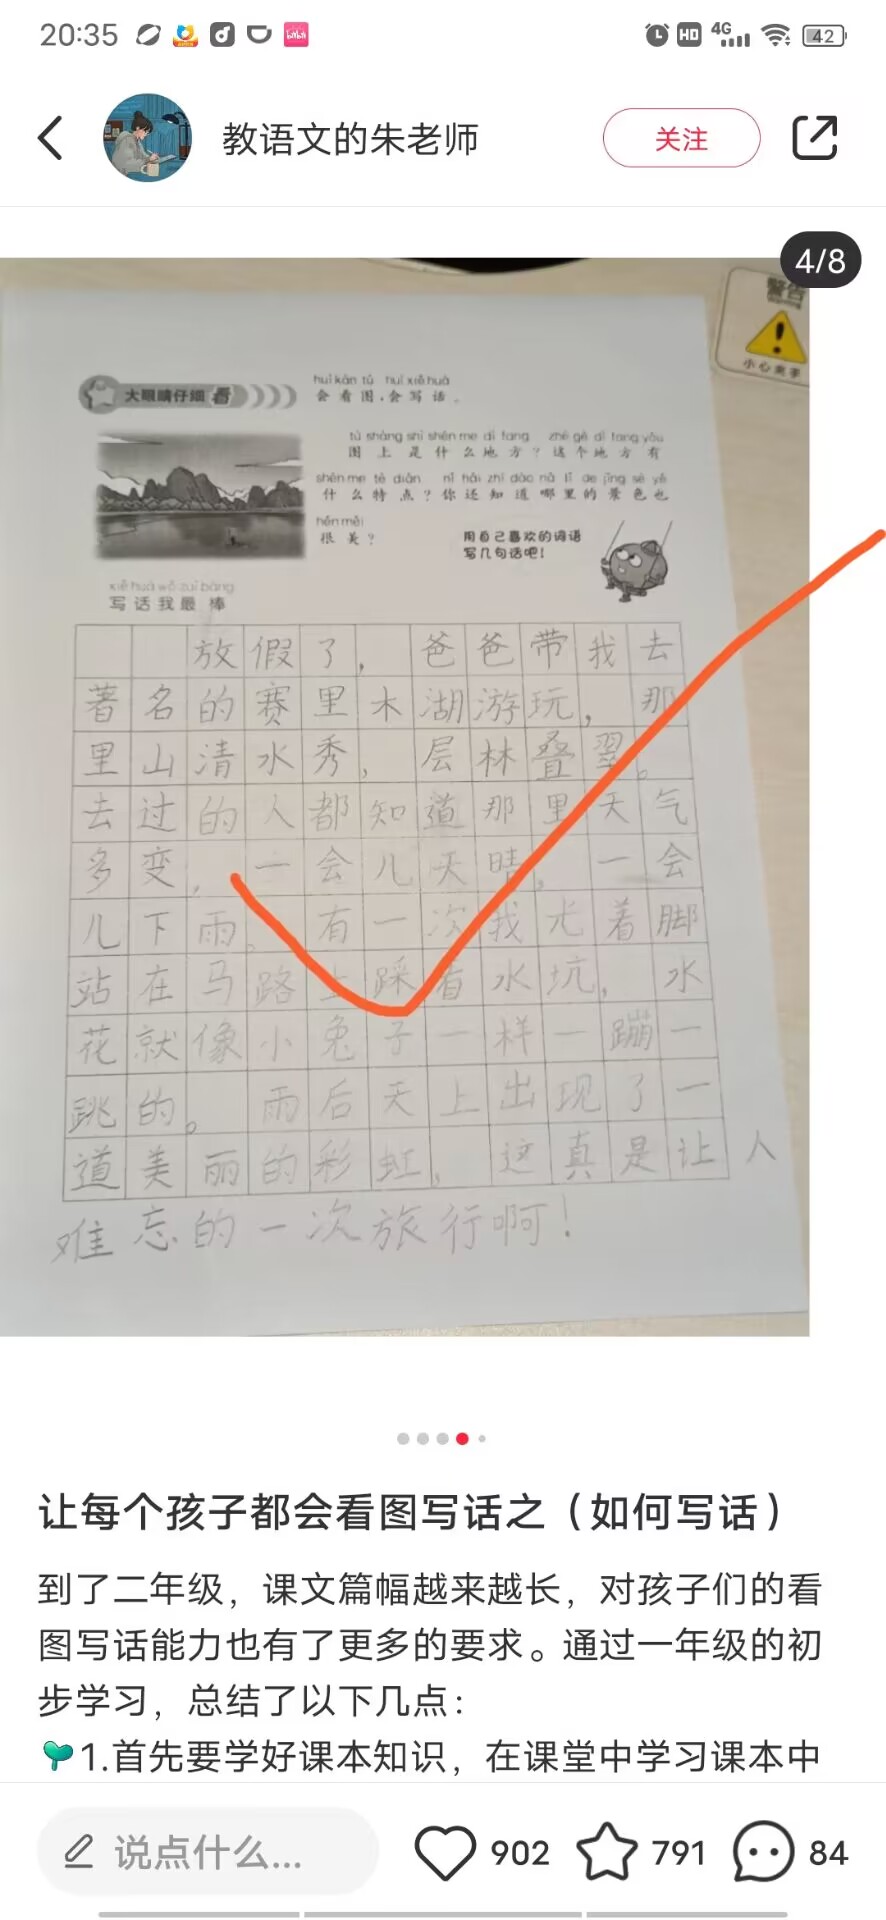 20:35
HD 4G 42
教语文的朱老师
关注
4/8
警告
小心夹手
大眼睛仔细看
huì kàn tú huì xiě huà
会看图,会写话。
tú shàng shì shén me dì fang zhè gè dì fang yǒu
图上是什么地方?这个地方有
shén me tè diǎn nǐ hái zhī dào nǎ lǐ de jǐng sè yě
什么特点?你还知道哪里的景色也
hěn měi
很美?
用自己喜欢的词语
写几句话吧!
xiě huà wǒ zuì bàng
写话我最棒
放假了,爸爸带我去
著名的赛里木湖游玩,那
里山清水秀,层林叠翠。
去过的人都知道那里天气
多变,一会儿天晴,一会
儿下雨。有一次我光着脚
站在马路上踩着水坑,水
花就像小兔子一样一蹦一
跳的。雨后天上出现了一
道美丽的彩虹,这真是让人
难忘的一次旅行啊!
让每个孩子都会看图写话之(如何写话)
到了二年级,课文篇幅越来越长,对孩子们的看
图写话能力也有了更多的要求。通过一年级的初
步学习,总结了以下几点:
1.首先要学好课本知识,在课堂中学习课本中
说点什么...
902
791
84